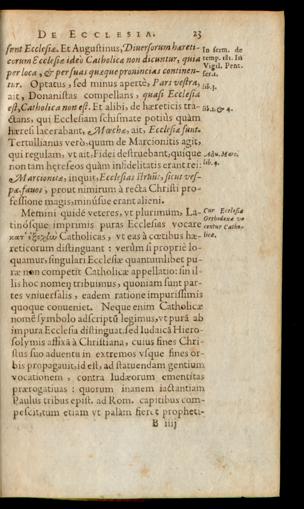 DE ECCLESIA. 23
sunt Ecclesiæ. Et Augustinus, Diuersorum hæreti-
corum Ecclesiæ ideò Catholicæ non dicuntur, quia
per loca, & per suas quæque prouincias continen-
tur. Optatus, sed minus apertè, Pars vestra,
ait, Donatistas compellans, quasi Ecclesia
est, Catholica non est. Et alibi, de hæreticis tra-
ctans, qui Ecclesiam schismate potiùs quàm
hæresi lacerabant, Mœchæ, ait, Ecclesiæ sunt.
Tertullianus verò, quum de Marcionitis agit,
qui regulam, vt ait, Fidei destruebant, quique
non tam hæreseos quàm infidelitatis erant rei:
Marcionitæ, inquit, Ecclesias struūt, sicut ves-
pæ, fauos, prout nimirum à recta Christi pro-
fessione magis, minúsue erant alieni.
Memini quidē veteres, vt plurimùm, La-
tinósque imprimis puras Ecclesias vocare
Catholicas, vt eas à cœtibus hæ-
reticorum distinguant: verùm si propriè lo-
quamur, singulari Ecclesiæ quantumlibet pu-
ræ non competit Catholicæ appellatio: sin il-
lis hoc nomen tribuimus, quoniam sunt par-
tes vniuersalis, eadem ratione impurissimis
quoque conueniet. Neque enim Catholicæ
nomē symbolo adscriptū legimus, vt purā ab
impura Ecclesia distinguat, sed Iudaicā Hiero-
solymis affixā à Christiana, cuius fines Chri-
stus suo aduentu in extremos vsque fines or-
bis propagauit, id est, ad statuendam gentium
vocationem, contra Iudæorum ementitas
prærogatiuas: quorum inanem iactantiam
Paulus tribus epist. ad Rom. capitibus com-
pescit, tum etiam vt palàm fieret propheti-
B iiij
In serm. de
temp. 181. In
Vigil. Pent.
ser. 1.
lib. 3.
lib. 1. & 4.
Adu. Marc.
lib. 4.
Cur Ecclesiæ
Orthodoxæ vo
centur Catho-
licæ.